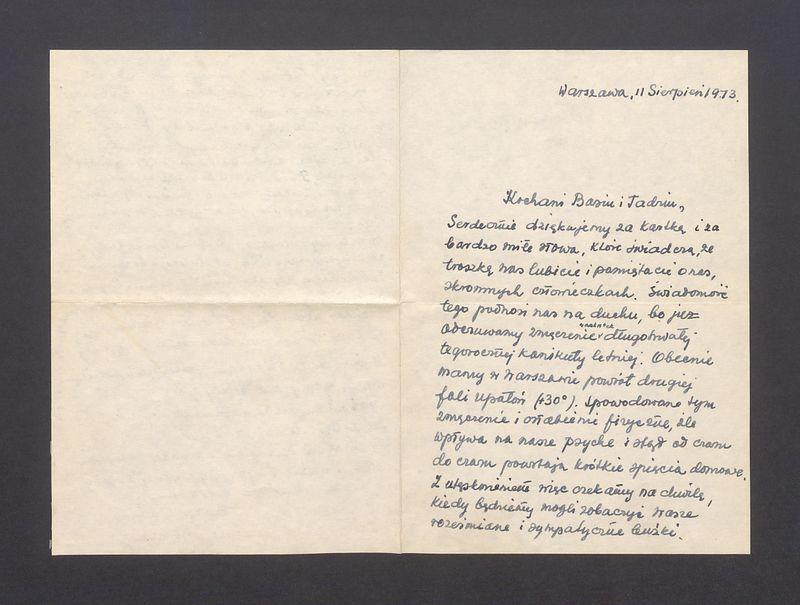 Warszawa, 11 Sierpień 1973.
Kochani Basiu i Tadziu,
Serdecznie dziękujemy za kartkę i za
bardzo miłe słowa, które świadczą, że
troszkę nas lubicie i pamiętacie o nas,
skromnych człowieczkach. Świadomość
tego podnosi nas na duchu, bo już
odczuwamy zmęczenie wskutek długotrwałej
tegorocznej kanikuły letniej. Obecnie
mamy w Warszawie powrót drugiej
fali upałów (+30°). Spowodowane tym
zmęczenie i osłabienie fizyczne, źle
wpływa na nasze psyche i stąd od czasu
do czasu powstają krótkie spięcia domowe.
Z utęsknieniem więc czekamy na chwilę,
kiedy będziemy mogli zobaczyć Wasze
roześmiane i sympatyczne buźki.